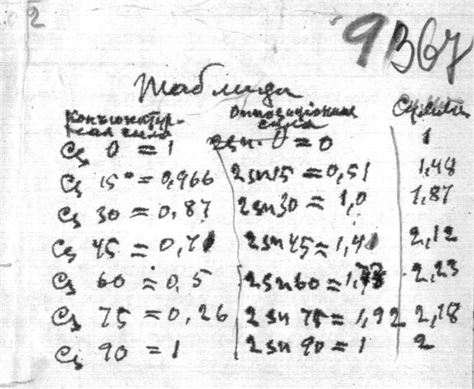 2
9367
Таблица
Конъюнктур-
ная сила
Оппозиционная
сила
Сумма
Cs 0 = 1 2sn. 0 = 0 1
Cs 15° = 0,966 2sn15 = 0,51 1,48
Cs 30 = 0,87 2sn30 = 1,0 1,87
Cs 45 = 0,71 2sn45 = 1,41 2,12
Cs 60 = 0,5 2sn60 = 1,73 2,23
Cs 75 = 0,26 2sn 75 = 1,92 2,18
Cs 90 = 1 2sn 90 = 1 2